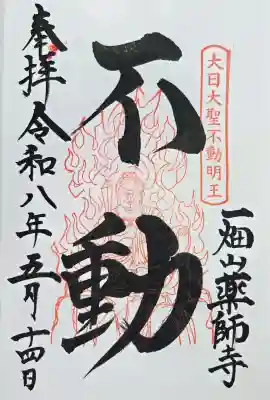 大日大聖不動明王
一畑山薬師寺
不動
奉拝 令和八年五月十四日